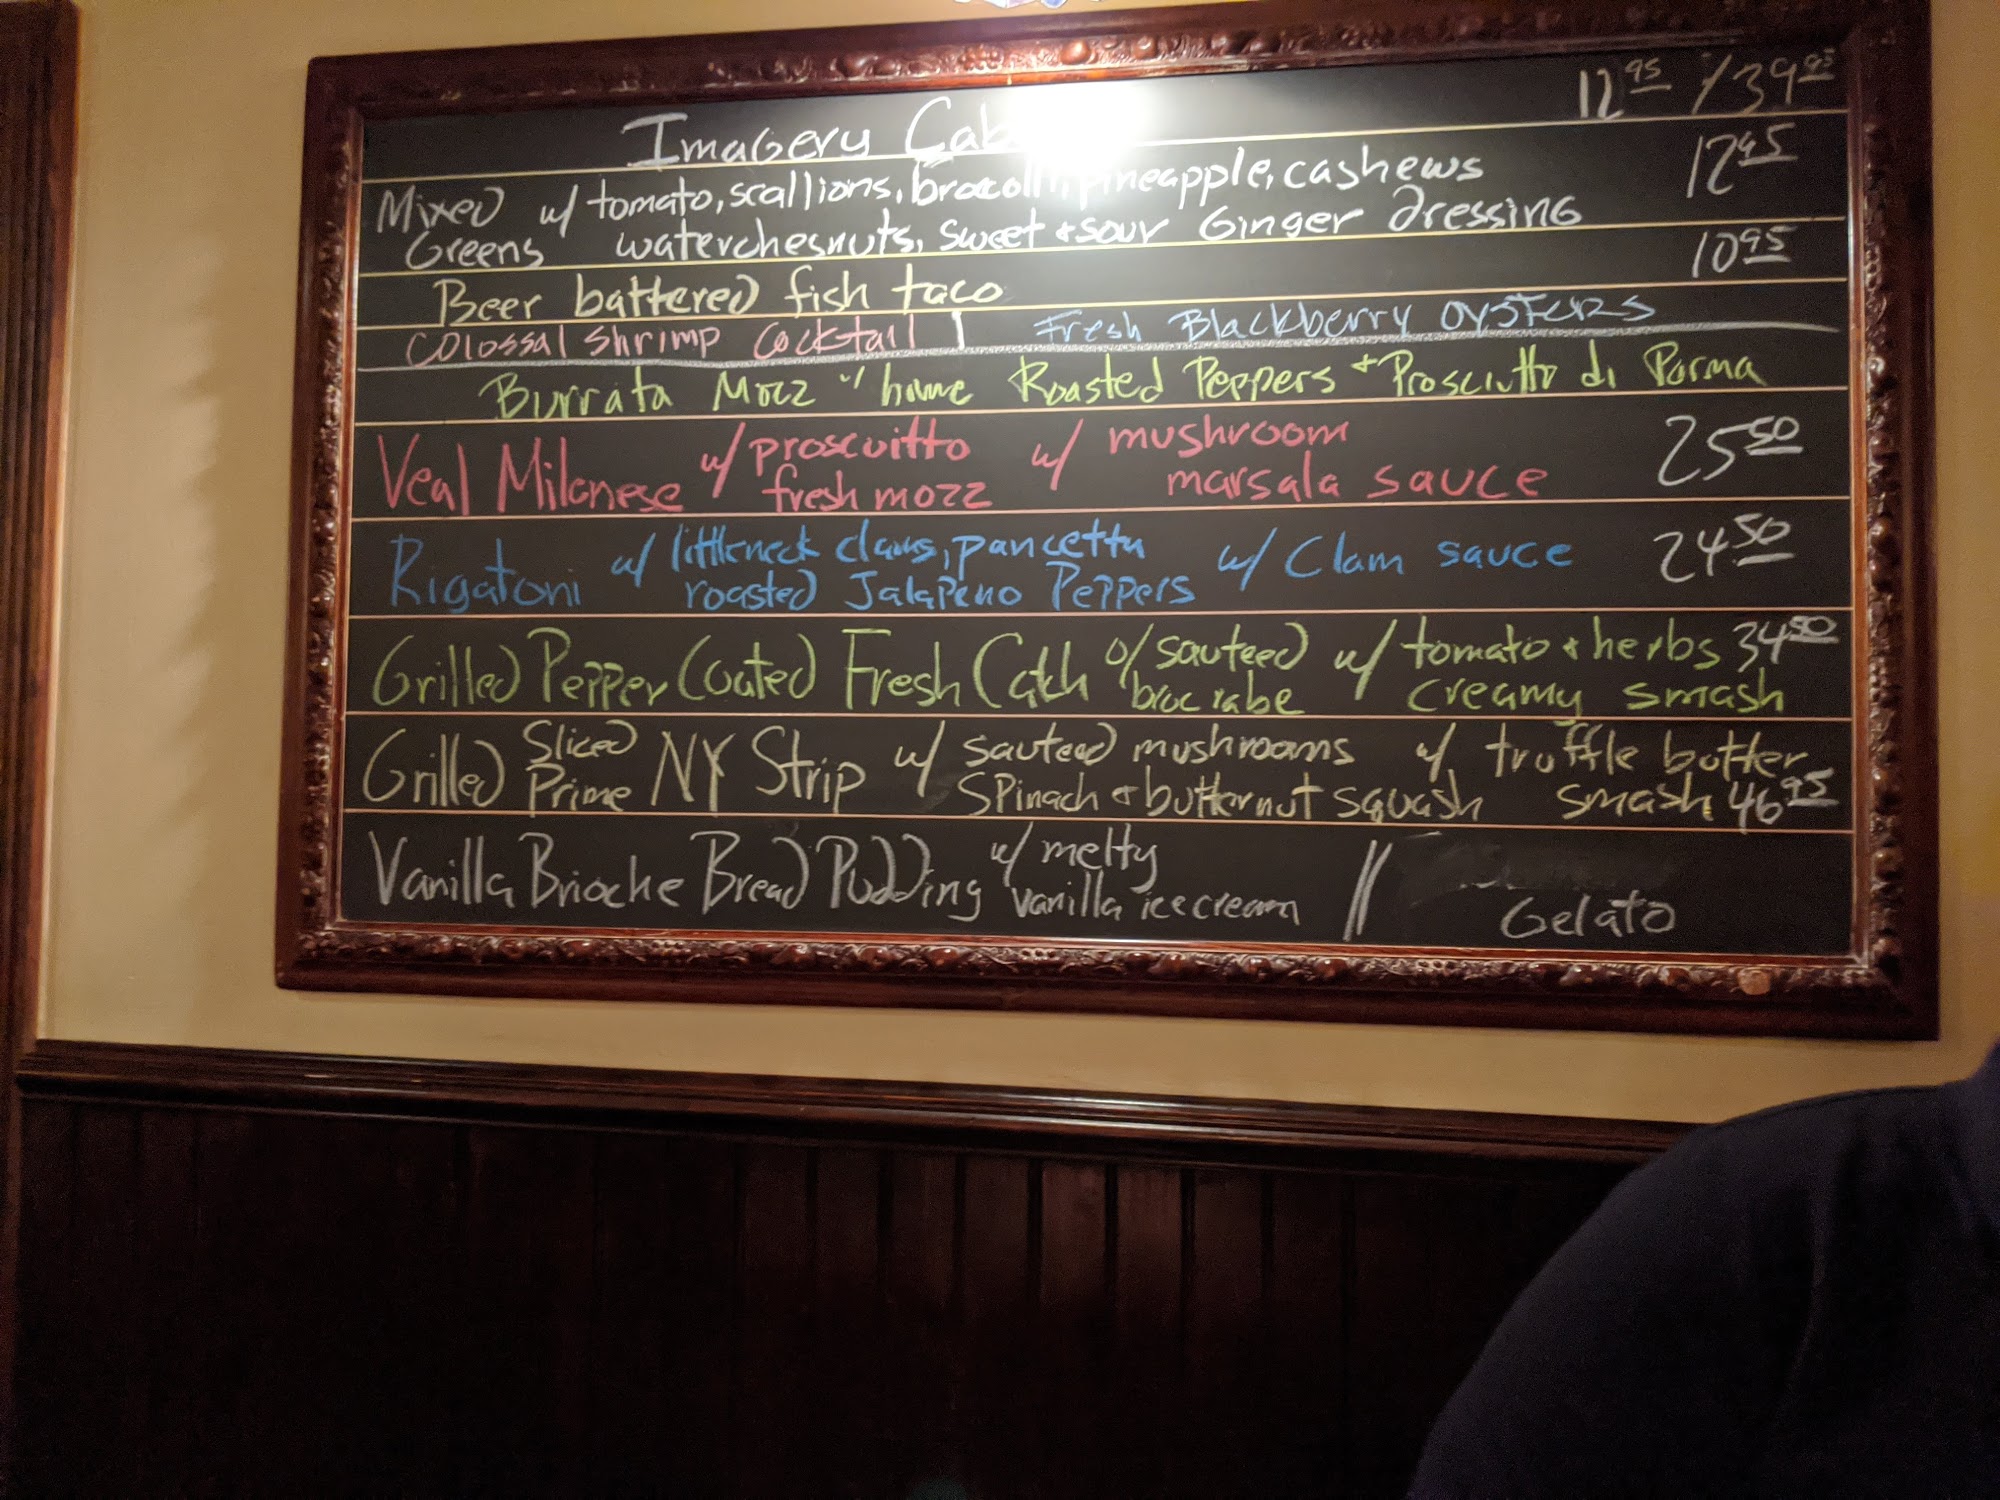 Imagery Cab 12 95 / 39 95
Mixed w/ tomato, scallions, brocolli, pineapple, cashews 12 95
Greens waterchesnuts, sweet + sour Ginger dressing
Beer battered fish taco 10 95
Colossal Shrimp Cocktail | Fresh Blackberry oysters
Burrata Mozz w/ home Roasted Peppers + Prosciutto di Parma
Veal Milanese w/ proscuitto w/ mushroom 25 50
fresh mozz marsala sauce
Rigatoni w/ littleneck clams, pancetta w/ Clam sauce 24 50
roasted Jalapeno Peppers
Grilled Pepper Coated Fresh Catch o/ sauteed w/ tomato + herbs 34 50
broc rabe creamy smash
Grilled Sliced NY Strip w/ sauteed mushrooms w/ truffle butter
Prime Spinach + butternut squash smash 46 95
Vanilla Brioche Bread Pudding w/ melty //
vanilla ice cream Gelato